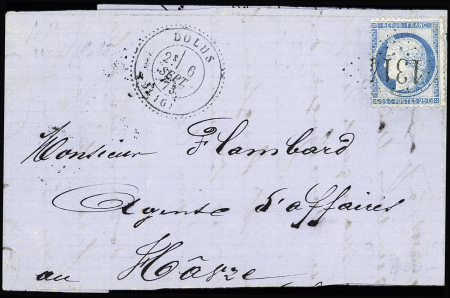 DOLUS
2E 6
SEPT.
73
(16)
REPUB. FRANC.
131
25 C POSTES 25 C
Monsieur Flambard
Agente d'affaires
au Hâvre